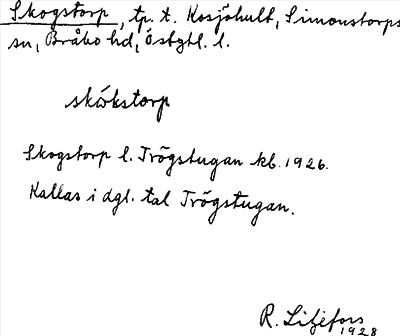 Skogstorp, tp. t. Kosjöhult, Simonstorps
sn, Bråbo hd, Östgtl. l.
skókstorp
Skogstorp l. Trögstugan kb. 1926.
Kallas i dgl. tal Trögstugan.
R. Liljefors
1928